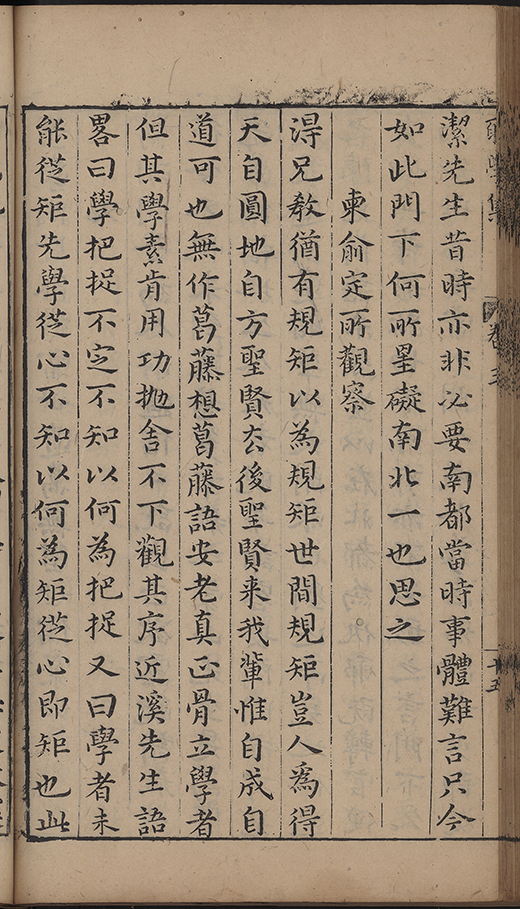 學集
潔先生昔時亦非必要南都當時事體難言只今
如此門下何所罣礙南北一也思之
柬俞定所觀察
得兄教猶有規矩以為規矩世間規矩豈人為得
天自圓地自方聖賢去後聖賢来我輩惟自成自
道可也無作葛藤想葛藤語安老真正骨立學者
但其學素肯用功抛舍不下觀其序近溪先生語
畧曰學把捉不定不知以何為把捉又曰學者未
能從矩先學從心不知以何為矩從心即矩也此